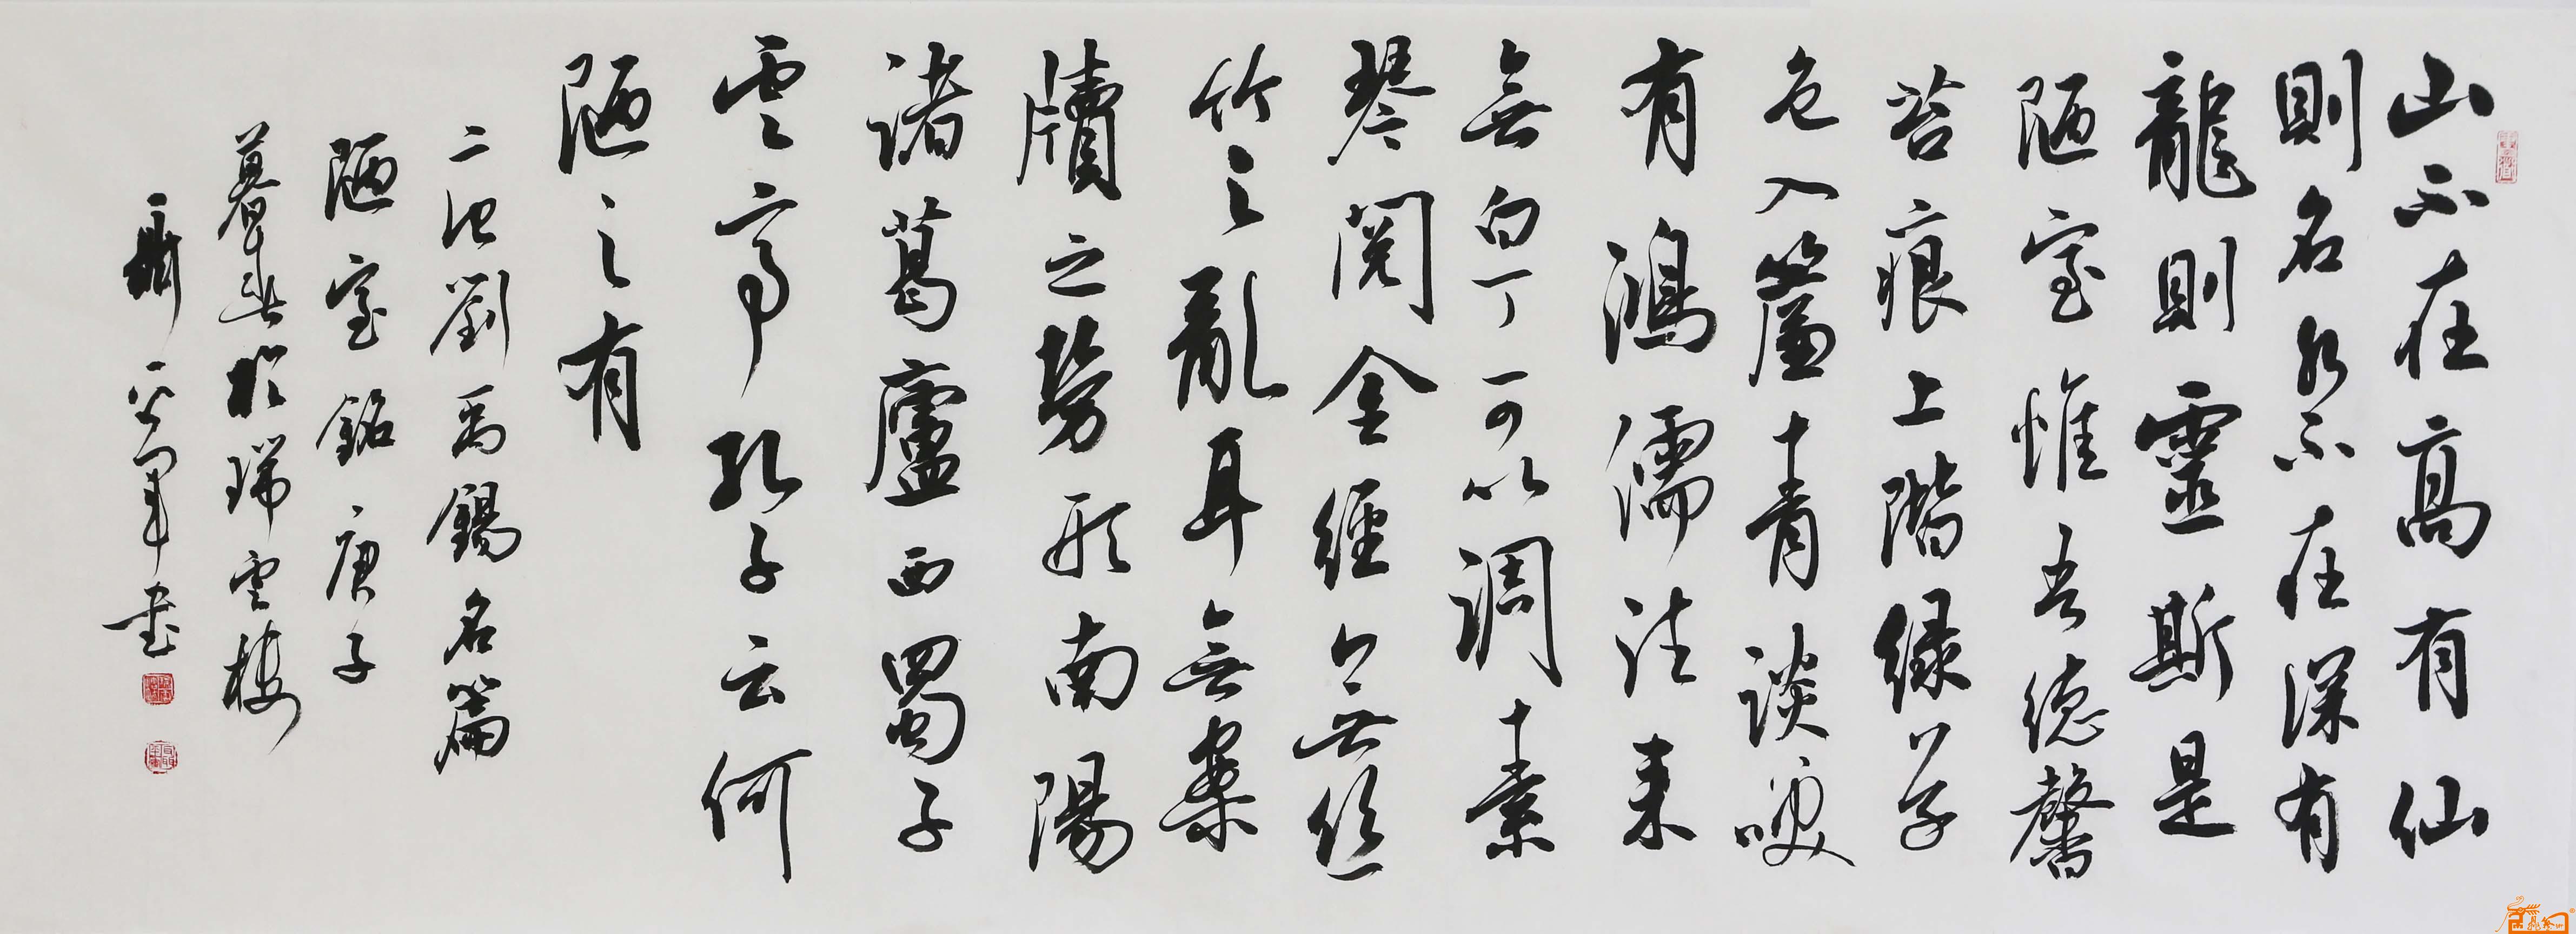 山不在高有仙
則名水不在深有
龍則靈斯是
陋室惟吾德馨
苔痕上階緑草
色入簾青談咲
有鴻儒往来
無白丁可以調素
琴閲金經無絲
竹之亂耳無案
牘之勞形南陽
諸葛廬西蜀子
雲亭孔子云何
陋之有
劉禹錫名篇
陋室銘庚子
暮春於瑞雲樓
書